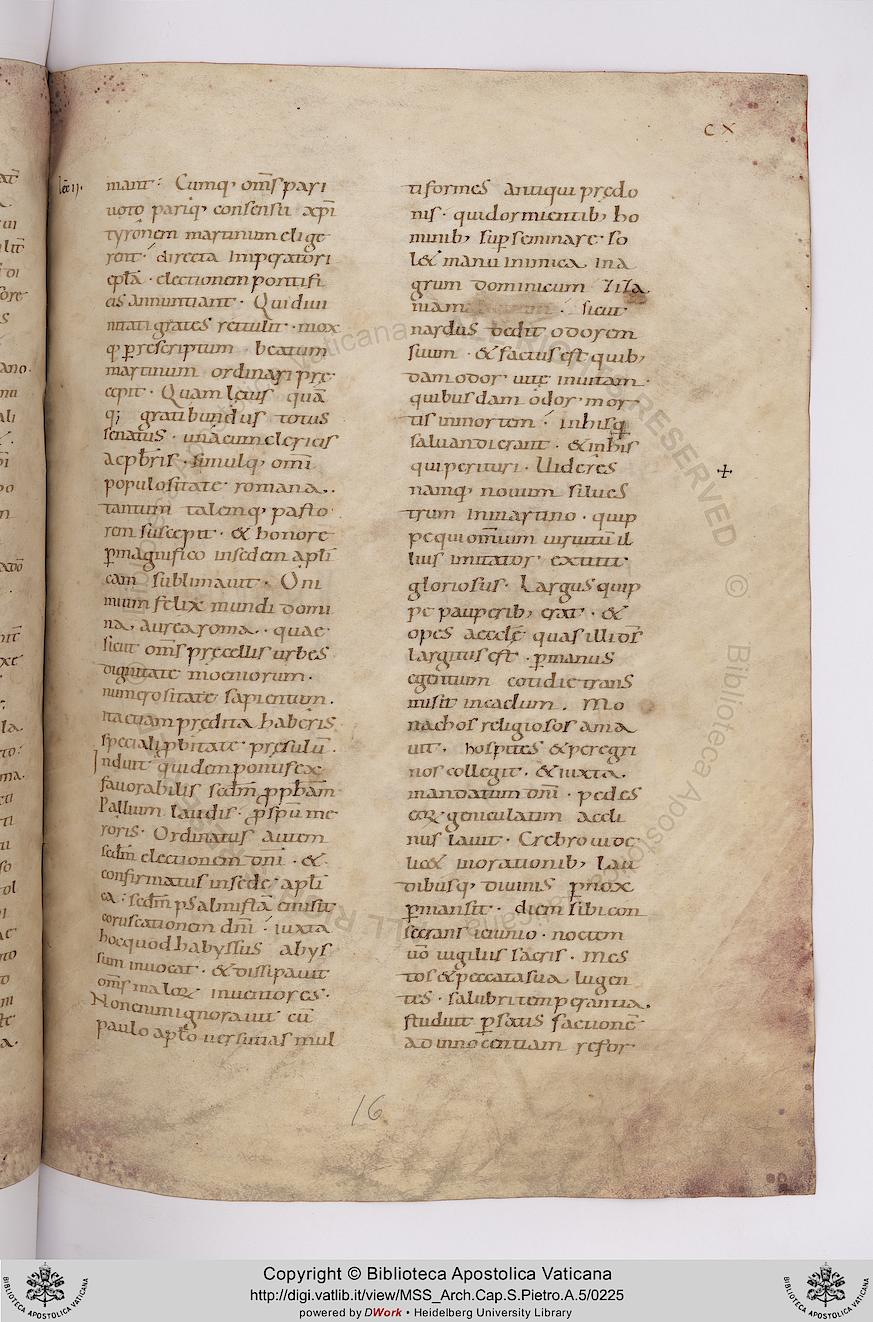 CX
lec̄ ij.
mant. Cumq; om̅s pari
uoto pariq; consensu xp̅i
tyronem martinum elige
rent. directa Imperatori
ep̅la. electionem pontifi
cis annuntiant. Qui diui
nitati grates retulit. mox
q; p̱rescriptum beatum
martinum ordinari prę
cepit. Quam lętus quā
q; gratibundus totus
senatus. una cum clericis
ac pb̅ris. simulq; omi̅
populositate romana.
tantum talemq; pasto
rem suscepit. & honore
p̱magnifico in sedem apl̅i
cam sublimauit. O ni
mium felix mundi domi
na, aurea roma. quae
sicut om̅s pręcellis urbes
dignitate moeniorum.
numerositate sapientium.
ita etiam prędita haberis
speciali p̱bitate pręsulū.
Induit quidem pontifex
fauorabilis sedm̅ p̱ph̅am
Pallium laudis. p̱ sp̅u me
roris. Ordinatus autem
sedm̅ electionem dn̅i. &
confirmatus in sede apl̅i
ca. sedm̅ psalmistā emisit
coruscationem dn̅i. iuxta
hoc quod habyssus abys
sum inuocat. & dissipauit
om̅s maloꝝ inuentores.
Non enim ignorauit cū
paulo apl̅o uersutias mul
tiformes antiqui prędo
nis. qui dormientib; ho
minib; sup̱seminare so
l& manu inimica in a
grum dominicum ziza
niam. sicut
nardus dedit odorem
suum. & factus est quib;
dam odor uitę in uitam.
quibusdam odor mor
tis in mortem. in his q;
saluandi erant. & in his
qui perituri. Uideres
namq; nouum silues
trum in martino. quip
pe qui omnium uirtutū il
lius imitator extitit
gloriosus. Largus quip
pe pauperib; erat. &
opes aecclę quas illi ds̅
largitus est. p̱ manus
egentium cotidie trans
misit in caelum. Mo
nachos religiosos ama
uit. hospites & peregri
nos collegit. & iuxta
mandatum dn̅i. pedes
eoꝝ geniculatim accli
nus lauit. Crebro uide
lic& in orationib; lau
dibusq; diuinis p̱nox
p̱mansit. diem sibi con
secrans ieiunio. noctem
uō uigiliis sacris. Mes
tos & peccata sua lugen
tes. salubri temperantia
studuit p̱ satis factionē
ad innocentiam refor
16
Copyright © Biblioteca Apostolica Vaticana
http://digi.vatlib.it/view/MSS_Arch.Cap.S.Pietro.A.5/0225
powered by DWork • Heidelberg University Library